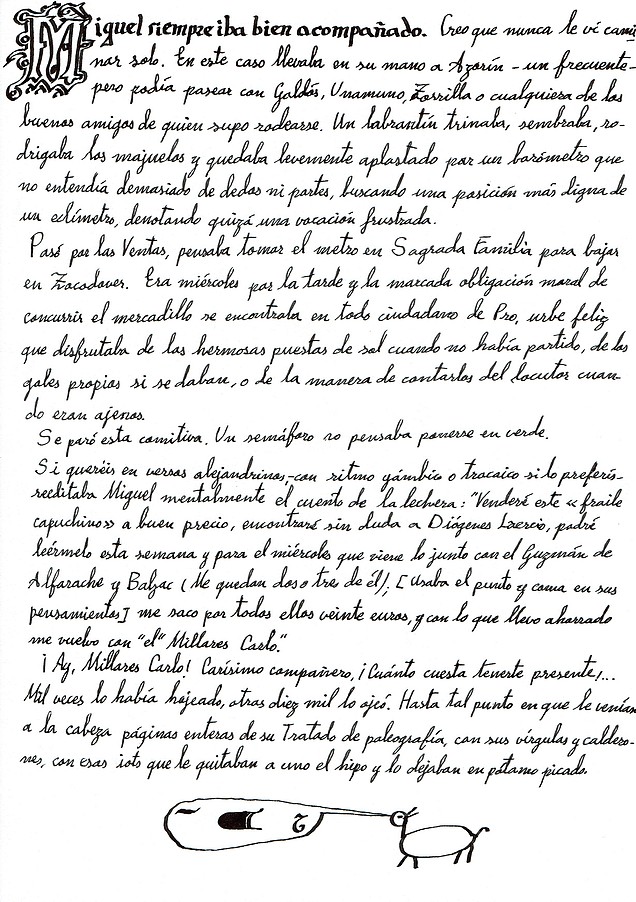 Miguel siempre iba bien acompañado. Creo que nunca le ví cami
nar solo. En este caso llevaba en su mano a Azorín - un frecuente-
pero podía pasear con Galdós, Unamuno, Zorrilla o cualquiera de los
buenos amigos de quien supo rodearse. Un labrantín trinaba, sembraba, ro-
drigaba los majuelos y quedaba levemente aplastado por un barómetro que
no entendía demasiado de dedos ni partes, buscando una posición más digna de
un eclímetro, denotando quizá una vocación frustrada.
Pasó por las Ventas, pensaba tomar el metro en Sagrada Familia para bajar
en Zocodover. Era miércoles por la tarde y la marcada obligación moral de
concurrir el mercadillo se encontraba en todo ciudadano de Pro, urbe feliz
que disfrutaba de las hermosas puestas de sol cuando no había partido, de los
goles propios si se daban, o de la manera de contarlos del locutor cuan-
do eran ajenos.
Se paró esta comitiva. Un semáforo no pensaba ponerse en verde.
Si queréis en versos alejandrinos,-con ritmo yámbico o trocaico si lo preferís-
reeditaba Miguel mentalmente el cuento de la lechera: "Venderé este «fraile
capuchino» a buen precio, encontraré sin duda a Diógenes Laercio, podré
leérmelo esta semana y para el miércoles que viene lo junto con el Guzmán de
Alfarache y Balzac (Me quedan dos o tres de él); [Usaba el punto y coma en sus
pensamientos] me saco por todos ellos veinte euros, y con lo que llevo ahorrado
me vuelvo con "el" Millares Carlo."
¡Ay, Millares Carlo! Carísimo compañero, ¡Cuánto cuesta tenerte presente!...
Mil veces lo había hojeado, otras diez mil lo ojeó. Hasta tal punto en que le venían
a la cabeza páginas enteras de su Tratado de paleografía, con sus vírgulas y caldero-
nes, con esas iots que le quitaban a uno el hipo y lo dejaban en pótamo picado.